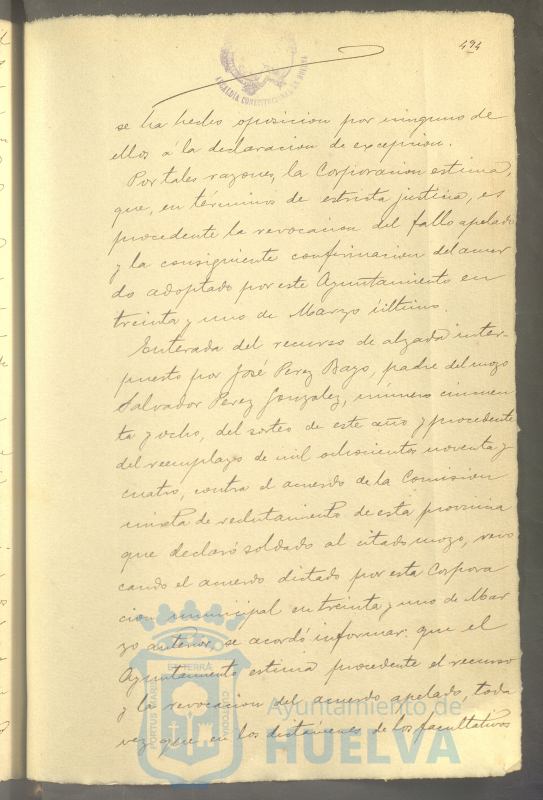 494
ALCALDÍA CONSTITUCIONAL DE HUELVA
se ha hecho oposicion por ninguno de
ellos á la declaracion de excepcion.
Por tales razones, la Corporacion estima,
que, en términos de estricta justicia, es
procedente la revocacion del fallo apelado
y la consiguiente confirmacion del acuer
do adoptado por este Ayuntamiento en
treinta y uno de Marzo último.
Enterada del recurso de alzada inter-
puesto por José Perez Bayo, padre del mozo
Salvador Perez Gonzalez, número cincuen
ta y ocho, del sorteo de este año y procedente
del reemplazo de mil ochocientos noventa y
cuatro, contra el acuerdo de la Comision
mixta de reclutamiento de esta provincia
que declaró soldado al citado mozo, revo
cando el acuerdo dictado por esta Corpora
cion municipal en treinta y uno de Mar
zo anterior, se acordó informar: que el
Ayuntamiento estima procedente el recurso
y la revocacion del acuerdo apelado, toda
vez que en los dictámenes de los facultativos
PORTUS MARIS ET TERRÆ CUSTODIA
Ayuntamiento de
HUELVA